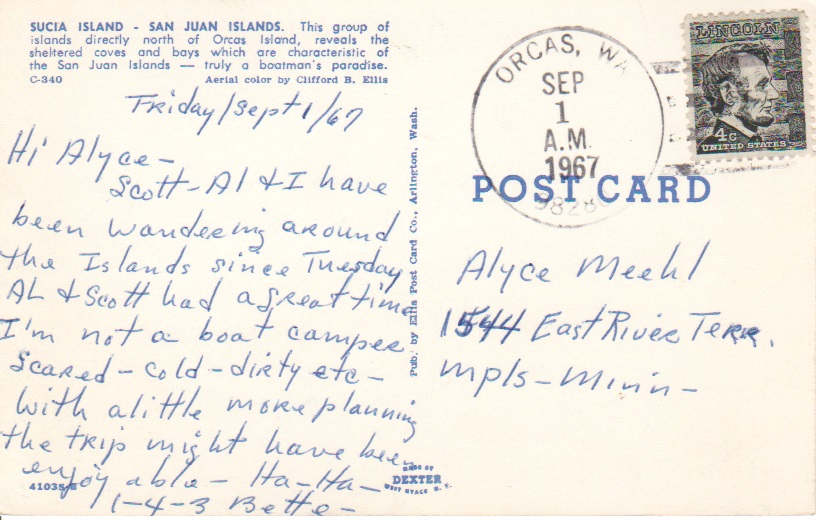 SUCIA ISLAND - SAN JUAN ISLANDS. This group of
islands directly north of Orcas Island, reveals the
sheltered coves and bays which are characteristic of
the San Juan Islands — truly a boatman's paradise.
C-340 Aerial color by Clifford B. Ellis
Friday/Sept 1/67
Hi Alyce -
Scott - Al & I have
been wandering around
the Islands since Tuesday
AL & Scott had a great time
I'm not a boat camper
Scared - cold - dirty etc -
With a little more planning
the trip might have been
enjoy able - Ha - Ha -
1-4-3 Bette -
41035-B
Pub. by Ellis Post Card Co., Arlington, Wash.
MADE BY
DEXTER
WEST NYACK N. Y.
ORCAS, WA
SEP
1
A.M.
1967
98280
LINCOLN
4c
UNITED STATES
POST CARD
Alyce Meehl
1544 East River Terr.
mpls - Minn -